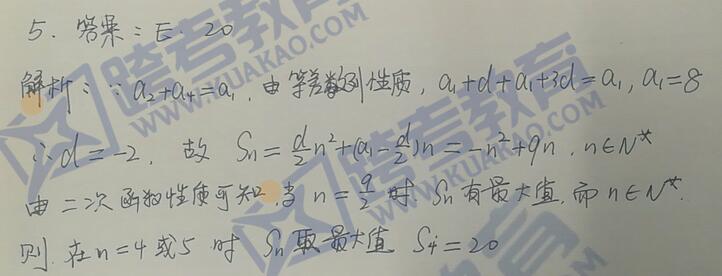 5. 答案：E. 20
解析：∵ a₂+a₄=a₁，由等差数列性质，a₁+d+a₁+3d=a₁, a₁=8
∴d=-2，故 Sₙ=d/2 n²+(a₁-d/2)n=-n²+9n，n∈N*
由二次函数性质可知，当 n=9/2 时 Sₙ有最大值，而 n∈N*.
则在n=4或5时 Sₙ取最大值 S₄=20
跨考教育
KUAKAO.COM
跨考教育
KUAKAO.COM
跨考教育
KUAKAO.COM